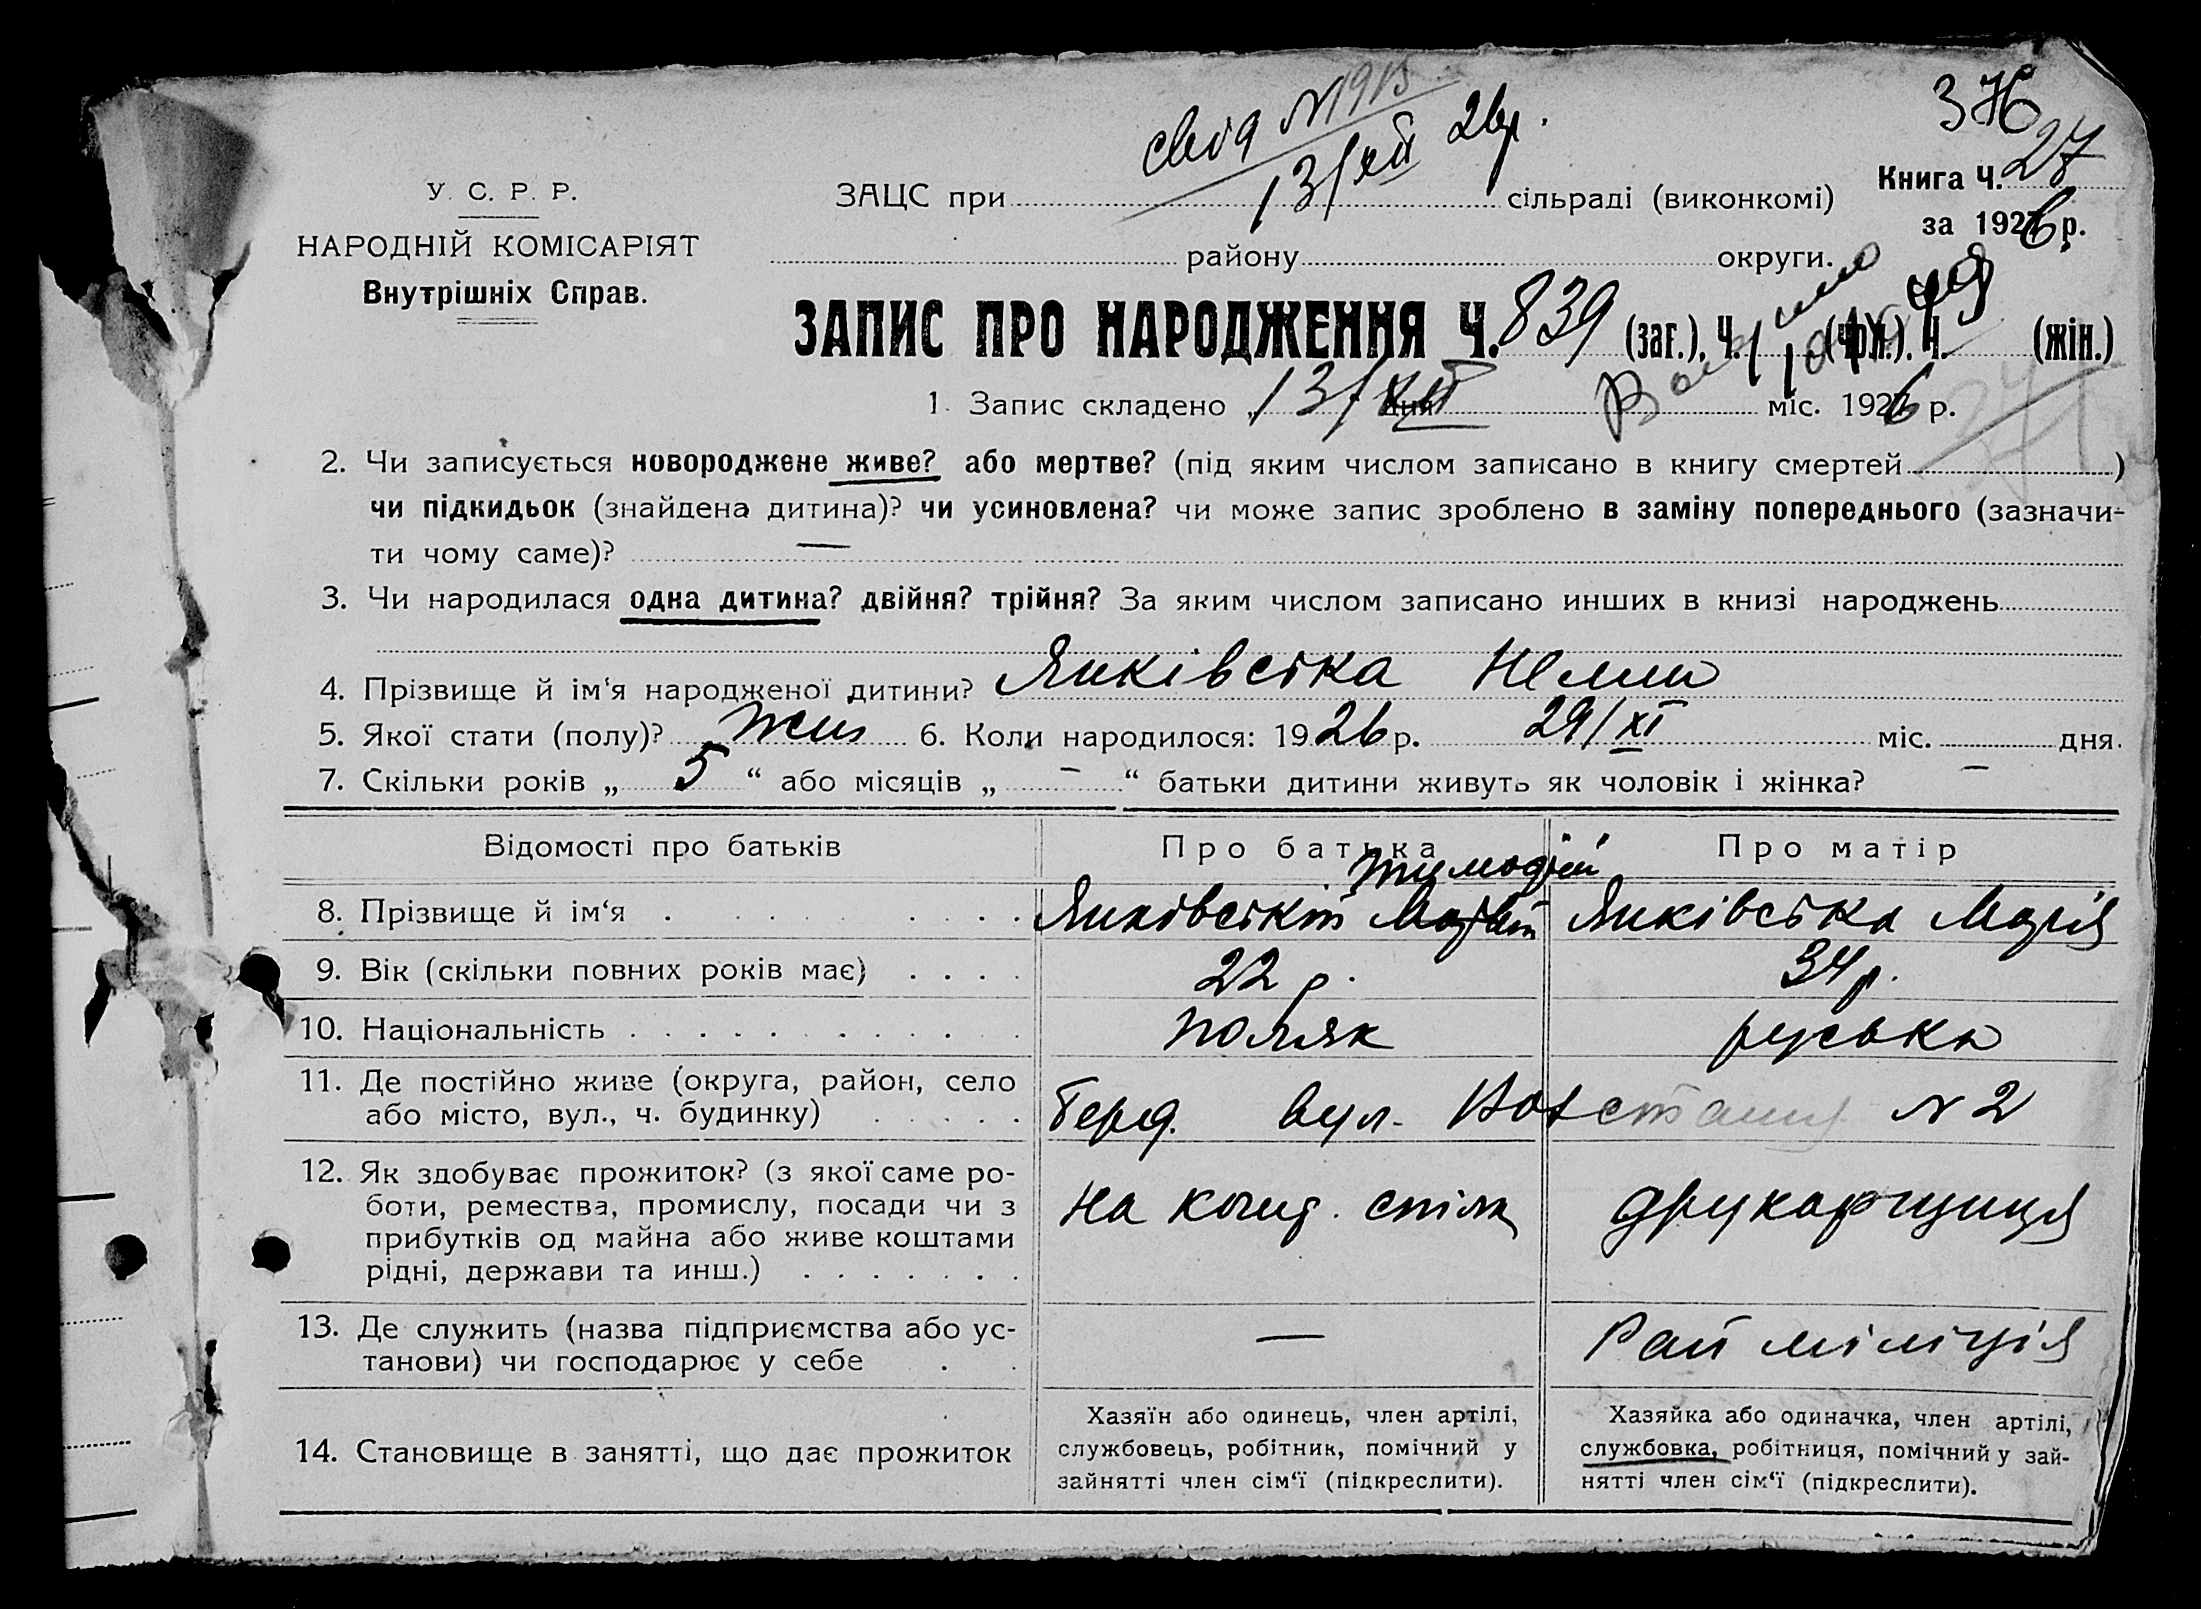 свід N 1915
13/XII 26р.
37б
У. С. Р. Р.
НАРОДНІЙ КОМІСАРІЯТ
Внутрішніх Справ.
ЗАЦС при сільраді (виконкомі)
Книга Ч. 27
за 1926 р.
району округи.
ЗАПИС ПРО НАРОДЖЕННЯ Ч. 839 (заг.), Ч. (чол.), Ч. (жін.)
1. Запис складено „ 13/XII дня міс. 1926 р.
2. Чи записується новороджене живе? або мертве? (під яким числом записано в книгу смертей )
чи підкидьок (знайдена дитина)? чи усиновлена? чи може запис зроблено в заміну попереднього (зазначи-
ти чому саме)? —
3. Чи народилася одна дитина? двійня? трійня? За яким числом записано инших в книзі народжень
4. Прізвище й ім‘я народженої дитини? Янківська Нелли
5. Якої стати (полу)? жин 6. Коли народилося: 1926 р. 29/XI міс. дня.
7. Скільки років „ 5 “ або місяців „ – “ батьки дитини живуть як чоловік і жінка? –
Відомості про батьків Про батька Про матір
Тимофій
8. Прізвище й ім‘я Янківський Матвій Янківська Марія
9. Вік (скільки повних років має) 22 р. 34 р.
10. Національність поляк руська
11. Де постійно живе (округа, район, село
або місто, вул., ч. будинку) Берд. вул. N 2
12. Як здобуває прожиток? (з якої саме ро-
боти, ремества, промислу, посади чи з
прибутків од майна або живе коштами
рідні, держави та инш.)
на утрим. спілки друкарщиця
13. Де служить (назва підприємства або ус-
танови) чи господарює у себе
— Рай міліція
14. Становище в занятті, що дає прожиток
Хазяїн або одинець, член артілі,
службовець, робітник, помічний у
зайнятті член сім‘ї (підкреслити).
Хазяйка або одиначка, член артілі,
службовка, робітниця, помічний у зай-
нятті член сім‘ї (підкреслити).